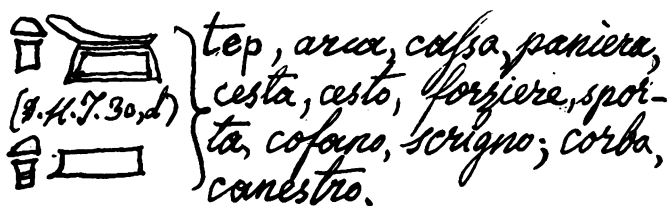 tep, arca, cassa, paniera,
cesta, cesto, forziere, spor-
ta, cofano, scrigno; corba,
canestro.